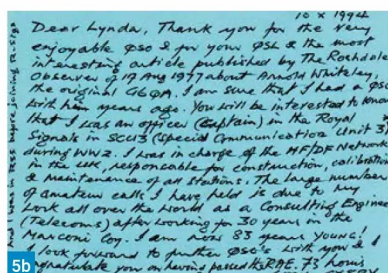 10 x 1994
Dear Lynda, Thank you for the very
enjoyable QSO & for your QSL & the most
interesting article published by The Rochdale
Observer of 17 Aug 1977 about Arnold Whiteley,
the original G6QA. I am sure that I had a QSO
with him years ago. You will be interested to know
that I was an officer (Captain) in the Royal
Signals in SCU3 (Special Communication Unit 3)
during WW2. I was in charge of the HF/DF Network
in the UK, responsible for construction, calibration
& maintenance of all stations. The large number
of amateur calls I have held is due to my
work all over the world as a Consulting Engineer
(Telecoms) after working for 30 years in the
Marconi Coy. I am now 83 years YOUNG!
I look forward to further QSO's with you & I
congratulate you on having passed the RAE. 73
And I was in before joining
5b